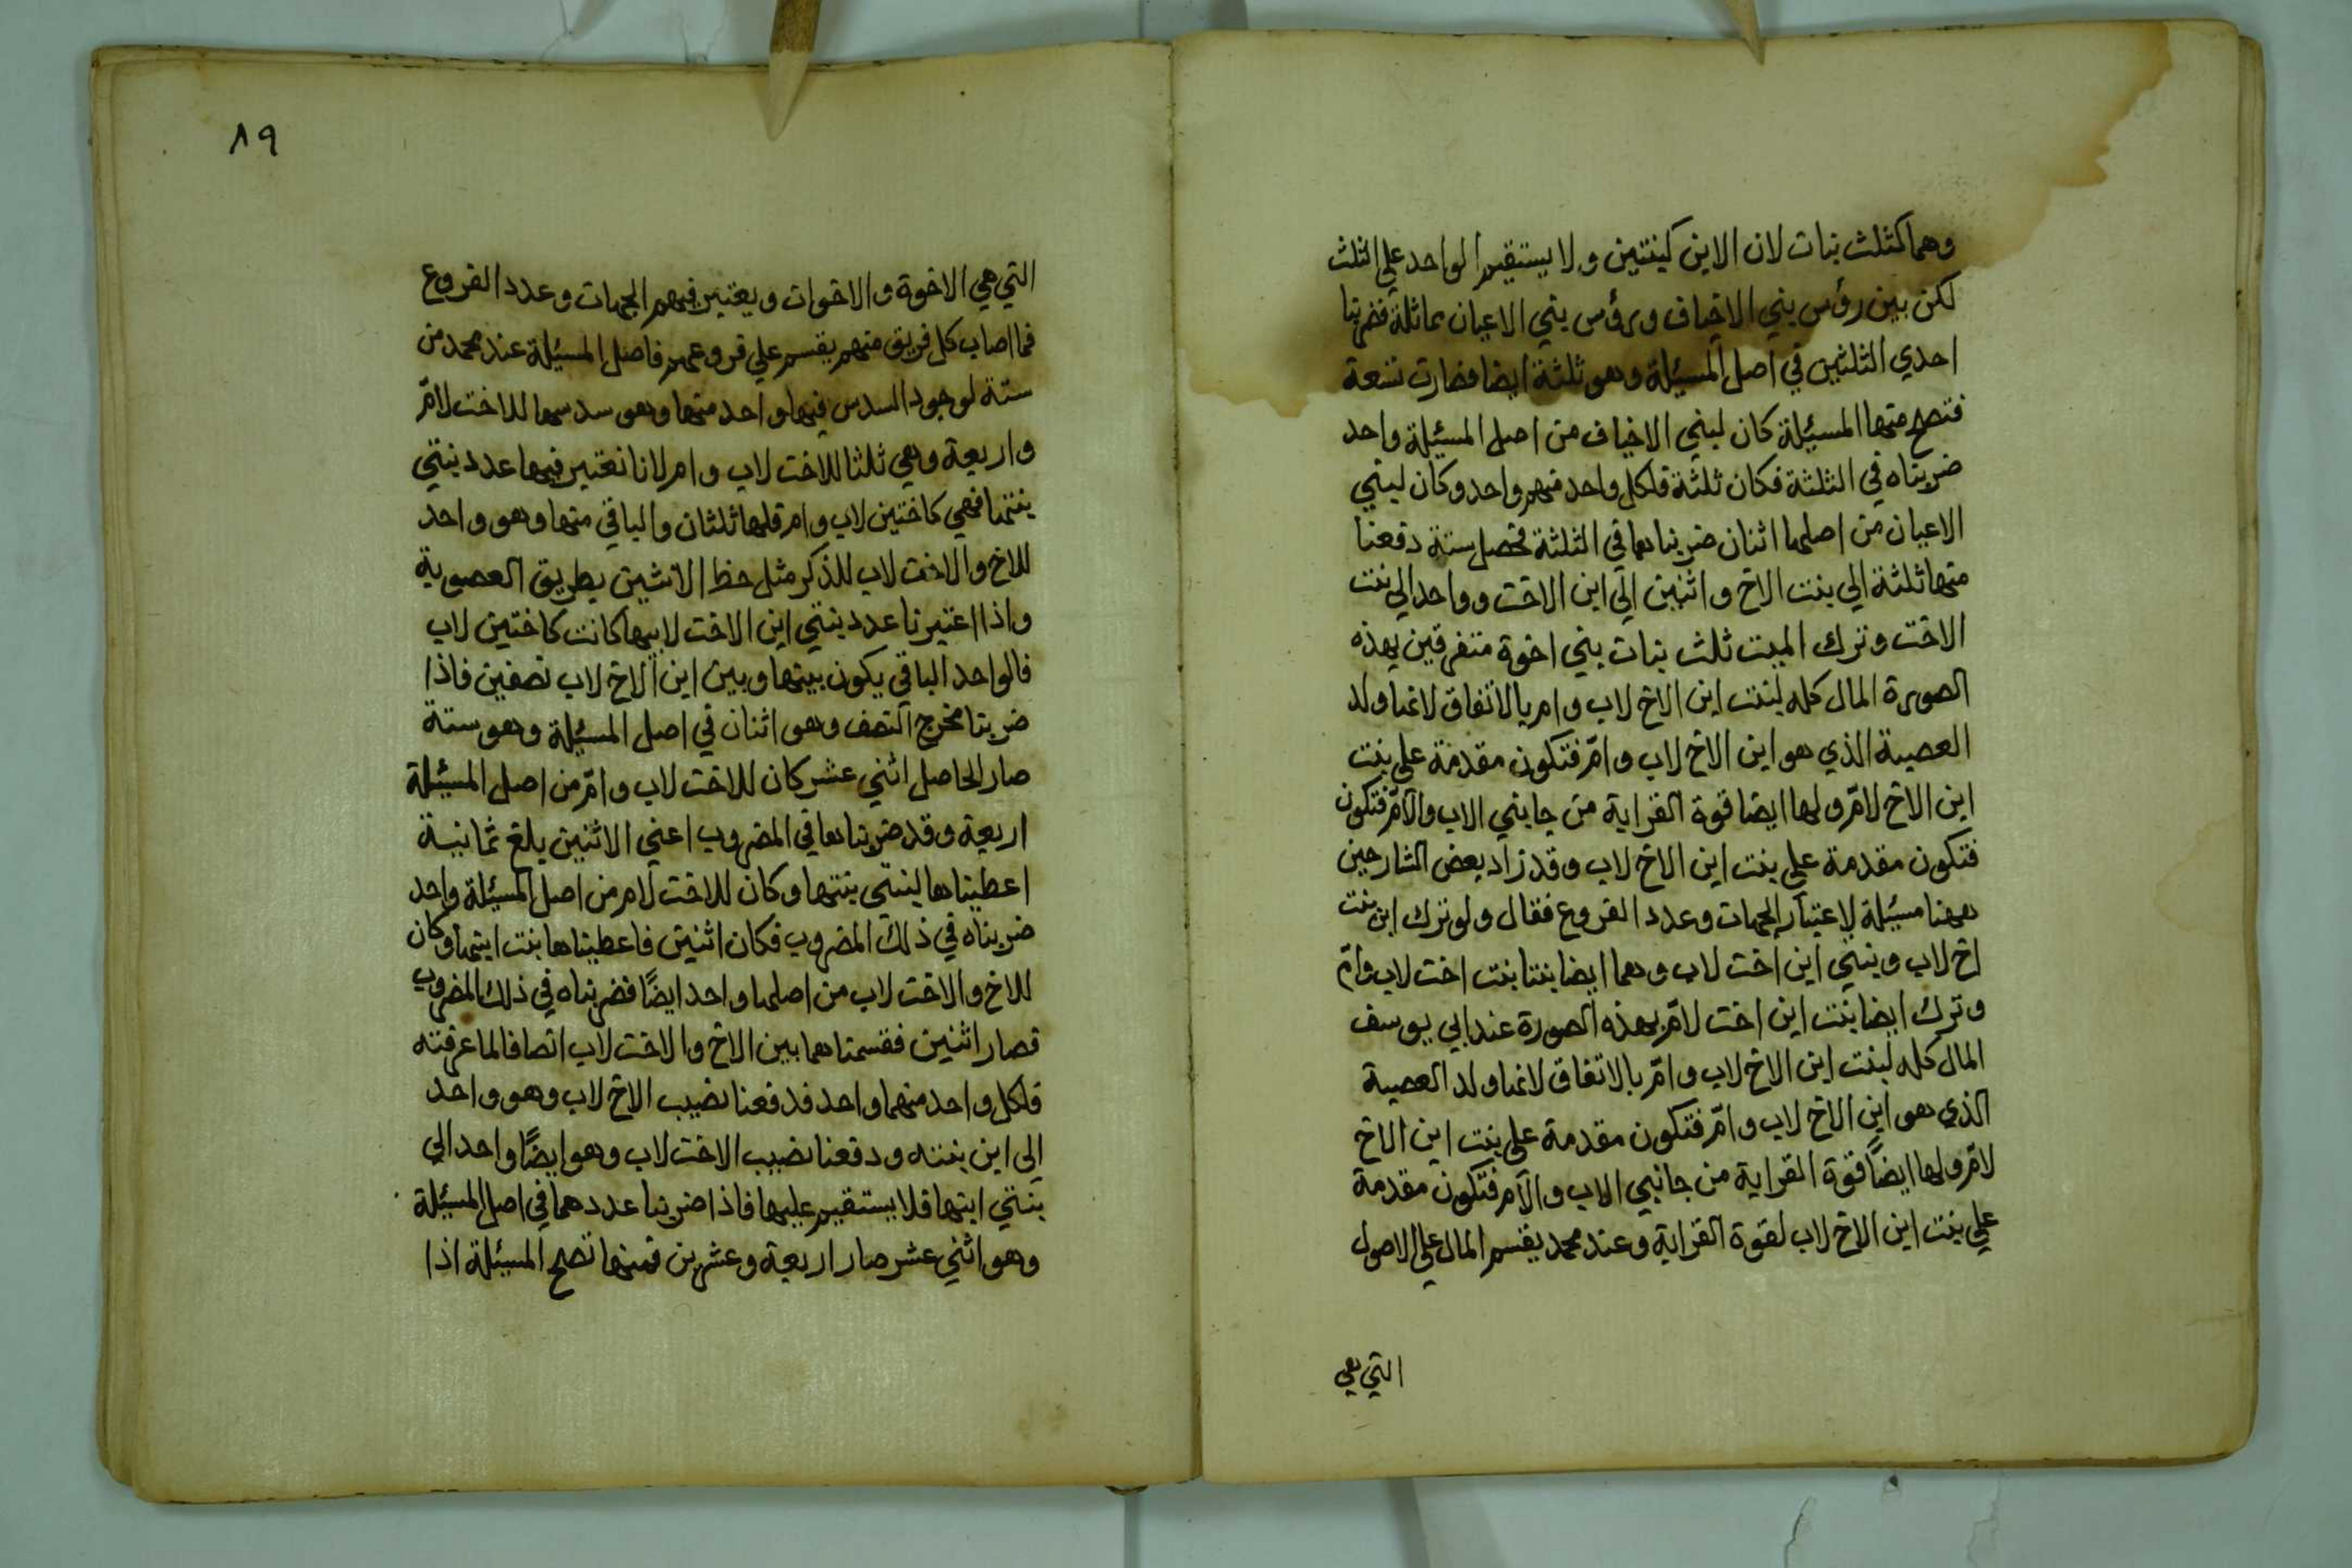 وهما كثلث بنات لان الابن كبنتين ولا يستقيم الواحد علي الثلث
لكن بين رؤس بني الاخياف ورؤس بني الاعيان مماثلة فضربنا
احدي الثلثين في اصل المسئلة وهو ثلثة ايضا فصارت تسعة
فتصح منها المسئلة كان لبني الاخياف من اصل المسئلة واحد
ضربناه في الثلثة فكان ثلثة فلكل واحد منهم واحد وكان لبني
الاعيان من اصلها اثنان ضربناهما في الثلثة فحصل ستة دفعنا
منها ثلثة الي بنت الاخ واثنين الي ابن الاخت وواحد الي بنت
الاخت وترك الميت ثلث بنات بني اخوة متفرقين بهذه
الصورة المال كله لبنت ابن الاخ لاب وام بالاتفاق لانها ولد
العصبة الذي هو ابن الاخ لاب وامّ فتكون مقدمة علي بنت
ابن الاخ لامّ ولها ايضا قوة القرابة من جانبي الاب والامّ فتكون
فتكون مقدمة علي بنت ابن الاخ لاب وقد زاد بعض الشارحين
ههنا مسئلة لاعتبار الجهات وعدد الفروع فقال ولو ترك ابن بنت
اخ لاب وبنتي ابن اخت لاب وهما ايضا بنتا بنت اخت لاب وامّ
وترك ايضا بنت ابن اخت لامّ بهذه الصورة عند ابي يوسف
المال كله لبنت ابن الاخ لاب وامّ بالاتفاق لانها ولد العصبة
الذي هو ابن الاخ لاب وامّ فتكون مقدمة علي بنت ابن الاخ
لامّ ولها ايضاً قوة القرابة من جانبي الاب والام فتكون مقدمة
علي بنت ابن الاخ لاب لقوة القرابة وعند محمد يقسم المال علي الاصول
التي هي
٨٩
التي هي الاخوة والاخوات ويعتبر فيهم الجهات وعدد الفروع
فما اصاب كل فريق منهم يقسم علي فروعهم فاصل المسئلة عند محمد من
ستة لوجود السدس فيها واحد منها وهو سدسها للاخت لامّ
واربعة وهي ثلثا للاخت لاب وام لانا نعتبر فيها عدد بنتي
بنتها فهي كاختين لاب وام فلها ثلثان والباقي منها وهو واحد
للاخ والاخت لاب للذكر مثل حظ الانثيين بطريق العصوبة
واذا اعتبرنا عدد بنتي ابن الاخت لابيها كانت كاختين لاب
فالواحد الباقي يكون بينها وبين ابن الاخ لاب نصفين فاذا
ضربنا مخرج النصف وهو اثنان في اصل المسئلة وهو ستة
صار الحاصل اثني عشر كان للاخت لاب وامّ من اصل المسئلة
اربعة وقد ضربناها في المضروب اعني الاثنين بلغ ثمانية
اعطيناها لبنتي بنتها وكان للاخت لام من اصل المسئلة واحد
ضربناه في ذلك المضروب فكان اثنين فاعطيناها بنت ابنها وكان
للاخ والاخت لاب من اصلها واحد ايضاً فضربناه في ذلك المضروب
فصار اثنين فقسمناهما بين الاخ والاخت لاب انصافا لما عرفته
فلكل واحد منهما واحد فدفعنا نصيب الاخ لاب وهو واحد
الي ابن بنته ودفعنا نصيب الاخت لاب وهو ايضًا واحد الي
بنتي ابنها فلا يستقيم عليها فاذا ضربنا عددهما في اصل المسئلة
وهو اثني عشر صار اربعة وعشرين فمنها تصح المسئلة اذا